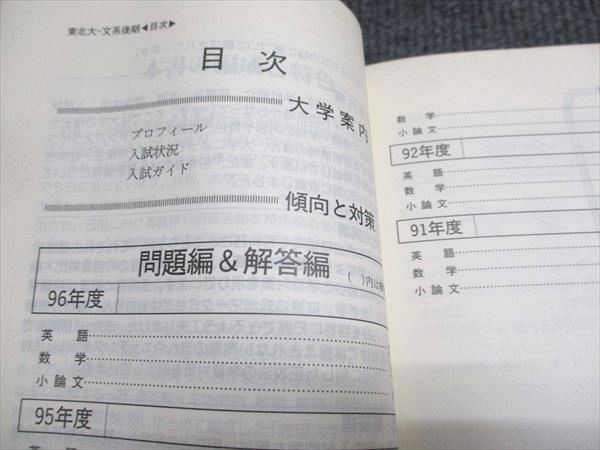 東北大-文系後期◀目次▶
目次
大学案内
プロフィール
入試状況
入試ガイド
傾向と対策
問題編&解答編
( )内は解
96年度
英語
数学
小論文
95年度
英語
数学
小論文
92年度
英語
数学
小論文
91年度
英語
数学
小論文